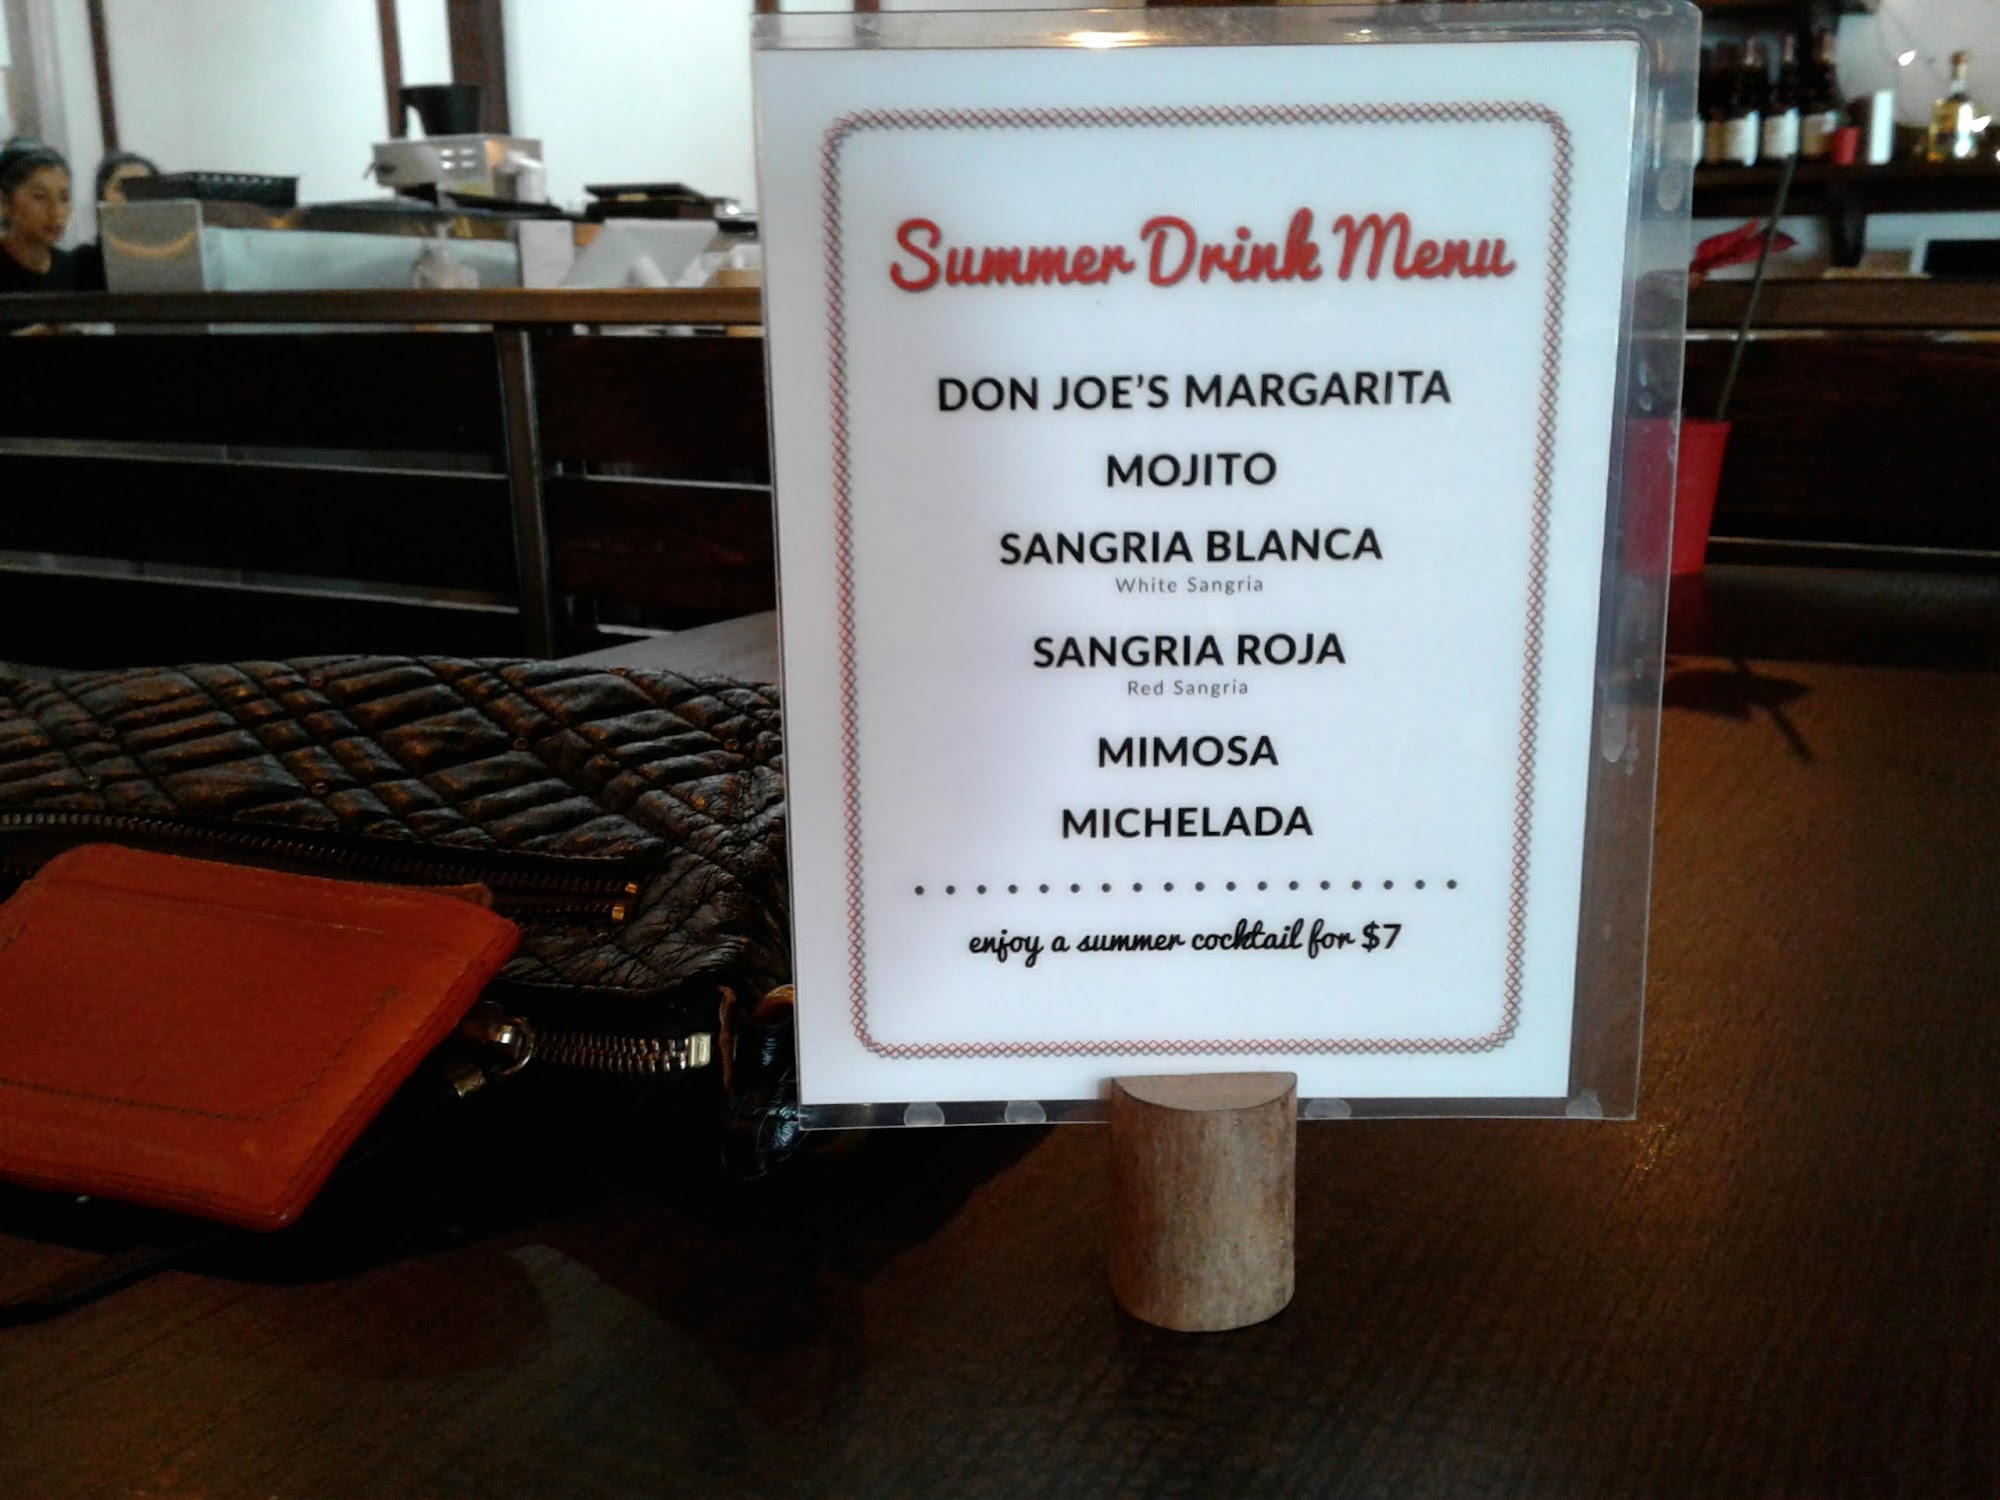 Summer Drink Menu
DON JOE'S MARGARITA
MOJITO
SANGRIA BLANCA
White Sangria
SANGRIA ROJA
Red Sangria
MIMOSA
MICHELADA
enjoy a summer cocktail for $7